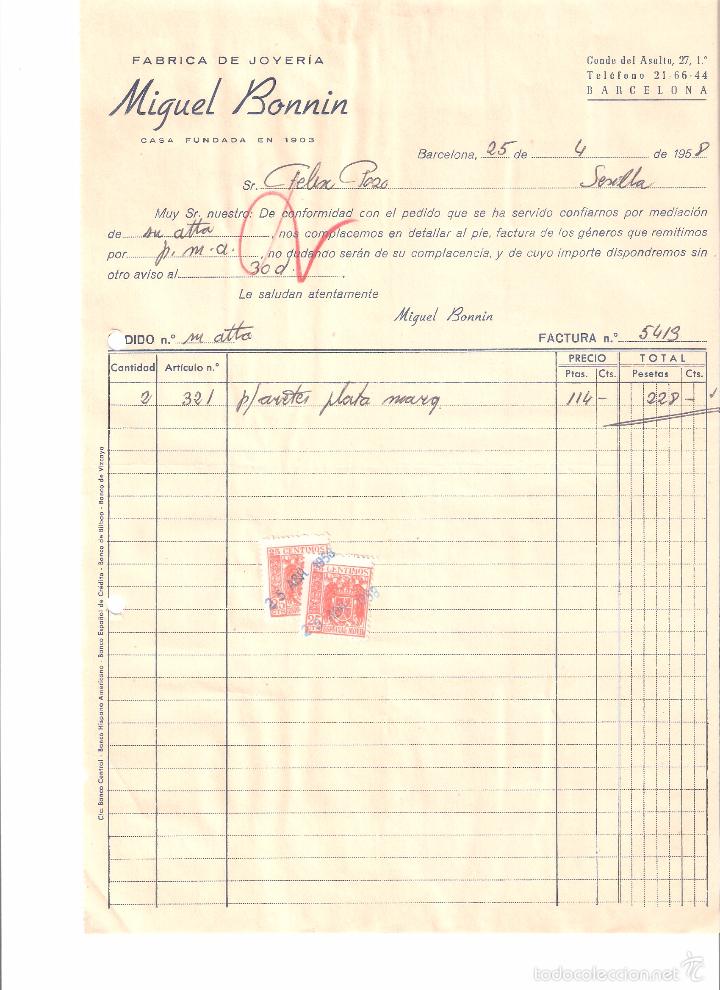 FABRICA DE JOYERÍA
Miguel Bonnin
CASA FUNDADA EN 1903
Conde del Asalto, 27, 1.°
Teléfono 21-66-44
BARCELONA
Barcelona, 25 de 4 de 1958
Sr. Felix Pozo Sevilla
Muy Sr. nuestro: De conformidad con el pedido que se ha servido confiarnos por mediación
de su atta, nos complacemos en detallar al pie, factura de los géneros que remitimos
por p. m. a., no dudando serán de su complacencia, y de cuyo importe dispondremos sin
otro aviso al 30 d.
Le saludan atentamente
Miguel Bonnin
DIDO n.° su atta FACTURA n.° 5419
Cantidad Artículo n.° PRECIO TOTAL
Ptas. Cts. Pesetas Cts.
2 321 p/ aretes plata marq. 114 - 228 -
Cta. Banco Central - Banco Hispano Americano - Banco Español de Crédito - Banco de Bilbao - Banco de Vizcaya
25 CENTIMOS
25 ABR 1958
25 CENTIMOS
25
ESPECIAL MOVIL
todocoleccion.net